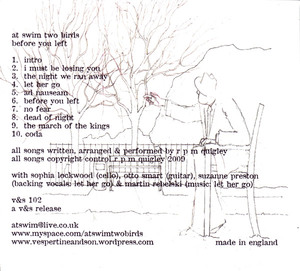 at swim two birds
before you left
1. intro
2. i must be losing you
3. the night we ran away
4. let her go
5. ad nauseam
6. before you left
7. no fear
8. dead of night
9. the march of the kings
10. coda
all songs written, arranged & performed by r p m quigley
all songs copyright control r p m quigley 2009
with sophia lockwood (cello), otto smart (guitar), suzanne preston
(backing vocals: let her go) & martin rebelski (music: let her go)
v&s 102
a v&s release
atswim@live.co.uk
www.myspace.com/atswimtwobirds
www.vespertineandson.wordpress.com
made in england